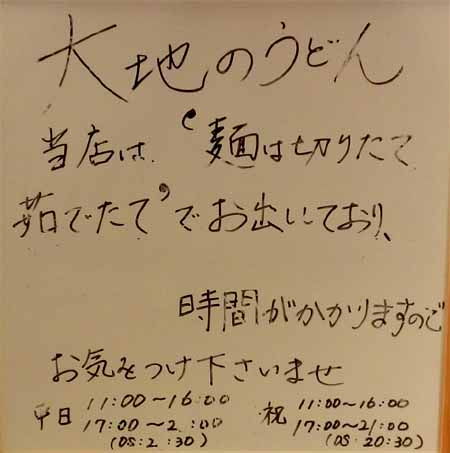 大地のうどん
当店は、‘麺は切りたて
茹でたて’でお出しており、
時間がかかりますので
お気をつけ下さいませ
平日 11:00～16:00 祝 11:00～16:00
17:00～2 :00 17:00～21:00
(OS:2 :30) (OS:20:30)